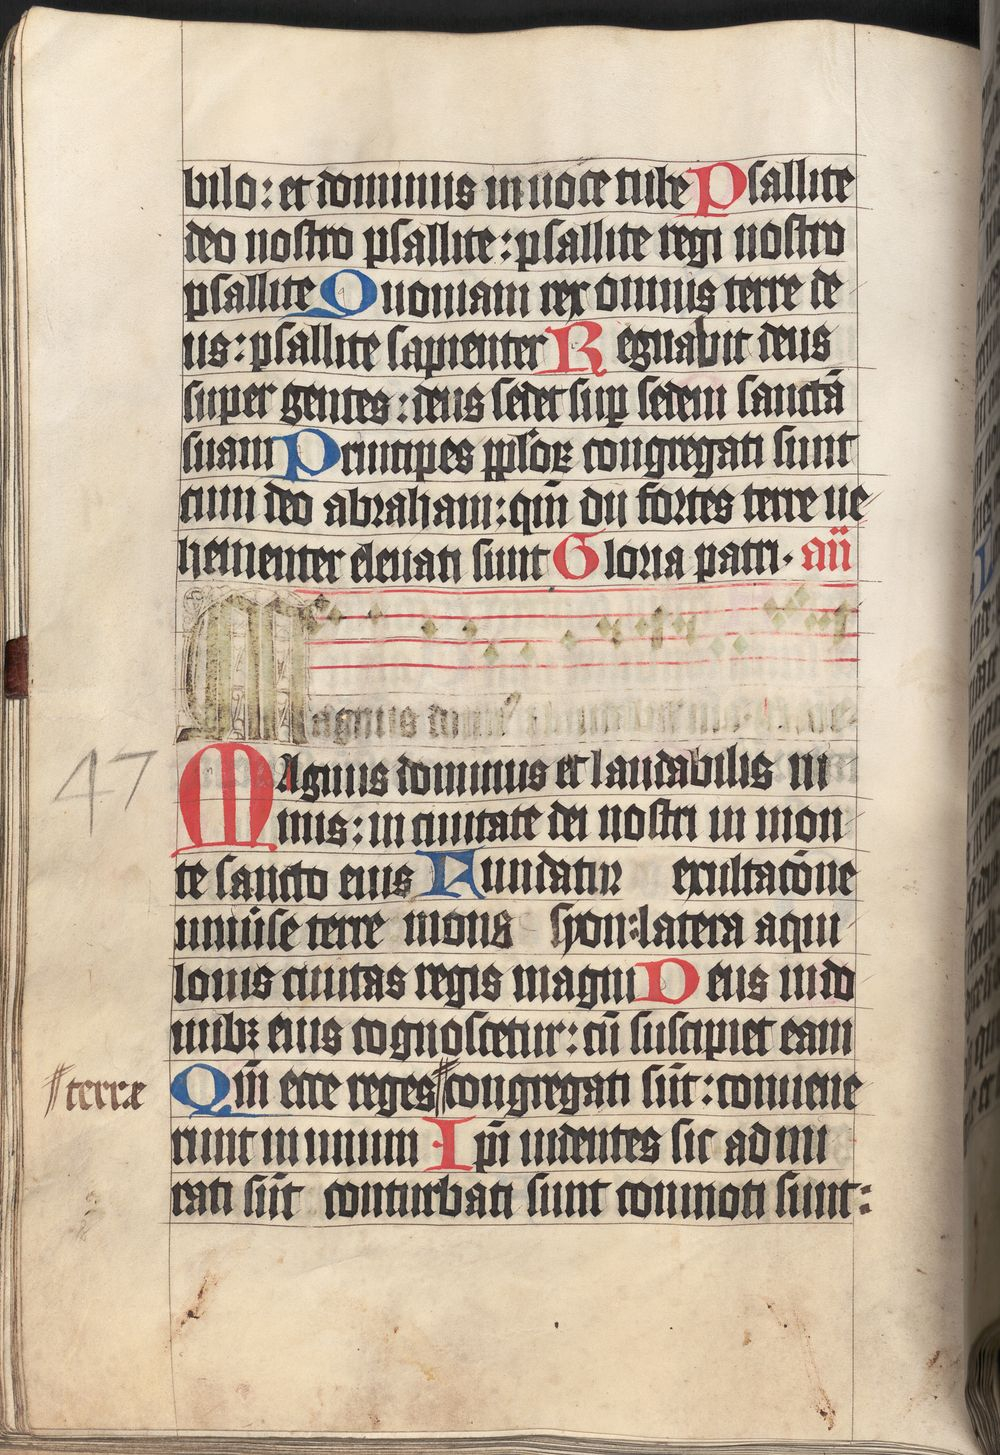 bilo: et dominus in uoce tube Psallite
deo nostro psallite: psallite regi nostro
psallite Quoniam rex omnis terre de
us: psallite sapienter Regnabit deus
super gentes: deus sedet sup sedem sanctā
suam Principes pploꝝ congregati sunt
cum deo abraham: qm̄ dii fortes terre ue
hementer eleuati sunt Gloria patri. an̄
Magnus
47
MAgnus dominus et laudabilis ni
mis: in ciuitate dei nostri in mon
te sancto eius Fundatur exultacōne
uniuīse terre mons syon: latera aqui
lonis ciuitas regis magni Deus in do
mibꝫ eius cognoscetur: cū suscipiet eam
terræ
Qm̄ ecce reges congregati sūt: conuene
runt in unum Ipī uidentes sic ad mi
rati sūt conturbati sunt commoti sunt: